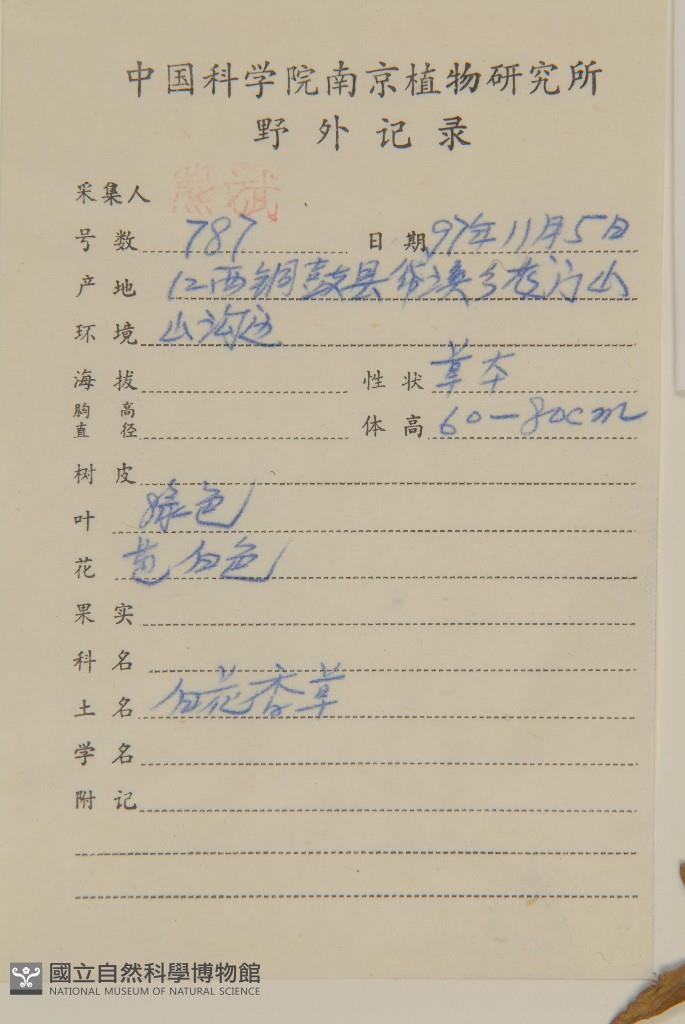 中国科学院南京植物研究所
野外记录
采集人 熊斌
号数 787 日期 97年11月5日
产地 江西铜鼓县 溪乡龙门山
环境 山沟边
海拔 性状 草本
胸高直径 体高 60—80cm
树皮
叶 绿色
花 白色
果实
科名
土名 白花香草
学名
附记
國立自然科學博物館
NATIONAL MUSEUM OF NATURAL SCIENCE